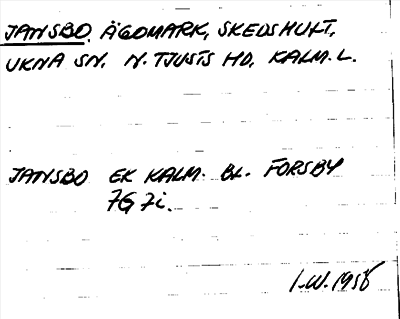 JANSBO, ÄGOMARK, SKEDSHULT,
UKNA SN, N. TJUSTS HD, KALM. L.
JANSBO EK KALM. BL. FORSBY
7G 7i.
I.W. 1958